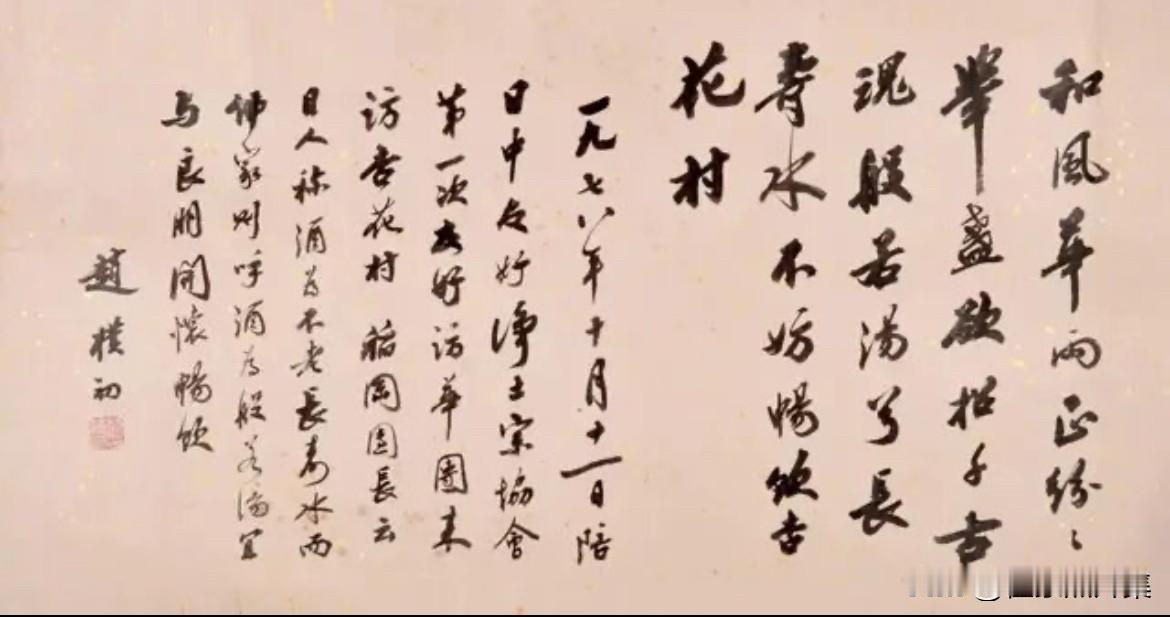 和風華雨正紛〻
舉盞欲招千古
魂般若湯兮長
壽水不妨暢飲杏
花村
一九七八年十月十一日陪
日中友好淨土宗協會
第一次友好訪華團来
訪杏花村 稲岡團長云
日人称酒為不老長壽水而
佛家则呼酒為般若湯宜
与良朋開懷暢飲
趙樸初